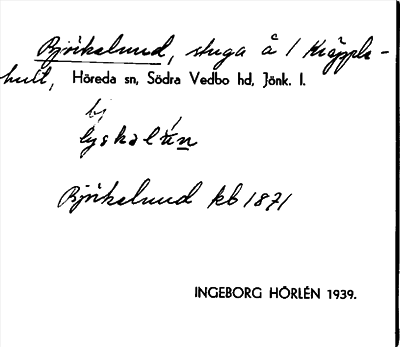 Björkelund, stuga å 1 Kräppls-
hult, Höreda sn, Södra Vedbo hd, Jönk. l.
bj
Björkelund kb 1871
INGEBORG HÖRLÉN 1939.